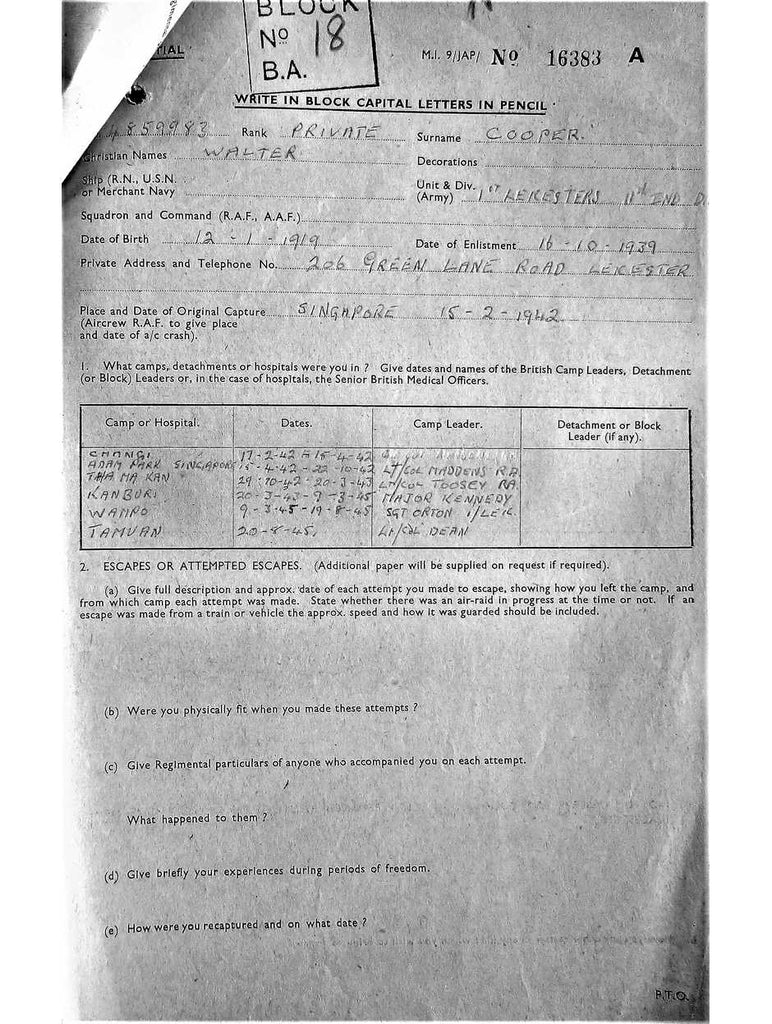 BLOCK
No 18
B.A.
IAL
M.I. 9/JAP/ No 16383 A
WRITE IN BLOCK CAPITAL LETTERS IN PENCIL
4859983 Rank PRIVATE Surname COOPER.
Christian Names WALTER Decorations
Ship (R.N., U.S.N. or Merchant Navy
Unit & Div. (Army) 1ST LEICESTERS 11th IND D.
Squadron and Command (R.A.F., A.A.F.)
Date of Birth 12 - 1 - 1919 Date of Enlistment 16 - 10 - 1939
Private Address and Telephone No. 206 GREEN LANE ROAD LEICESTER
Place and Date of Original Capture SINGAPORE 15 - 2 - 1942
(Aircrew R.A.F. to give place
and date of a/c crash).
1. What camps, detachments or hospitals were you in ? Give dates and names of the British Camp Leaders, Detachment
(or Block) Leaders or, in the case of hospitals, the Senior British Medical Officers.
Camp or Hospital. Dates. Camp Leader. Detachment or Block Leader (if any).
CHANGI 17-2-42 15-4-42
ADAM PARK SINGAPORE 15-4-42 - 22-10-42 LT/COL MADDENS R.A.
THA MA KAN 29-10-42 - 20-3-43 LT/COL TOOSEY RA.
KANBURI 20-3-43 - 9-3-45 MAJOR KENNEDY
WAMPO 9-3-45 - 19-8-45 SGT ORTON 1/LEIC.
TAMUAN 20-8-45. LT/COL DEAN
2. ESCAPES OR ATTEMPTED ESCAPES. (Additional paper will be supplied on request if required).
(a) Give full description and approx. date of each attempt you made to escape, showing how you left the camp, and
from which camp each attempt was made. State whether there was an air-raid in progress at the time or not. If an
escape was made from a train or vehicle the approx. speed and how it was guarded should be included.
(b) Were you physically fit when you made these attempts ?
(c) Give Regimental particulars of anyone who accompanied you on each attempt.
What happened to them ?
(d) Give briefly your experiences during periods of freedom.
(e) How were you recaptured and on what date ?
P.T.O.